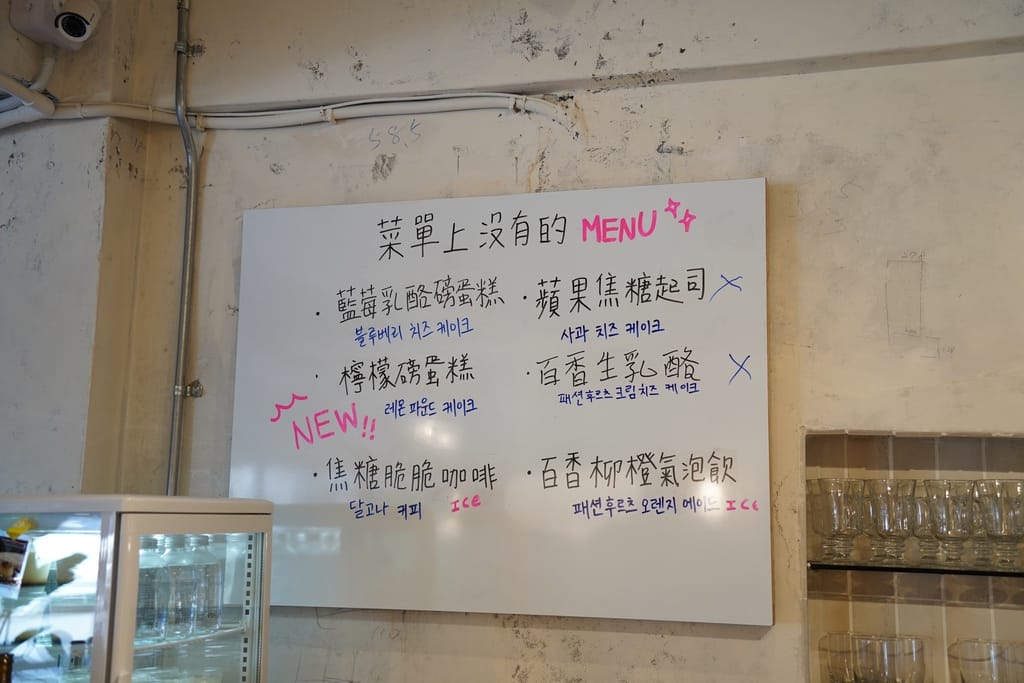 585
菜單上沒有的 MENU
· 藍莓乳酪磅蛋糕
블루베리 치즈 케이크
· 檸檬磅蛋糕
레몬 파운드 케이크
NEW!!
· 焦糖脆脆咖啡
달고나 커피 ICE
· 蘋果焦糖起司 X
사과 치즈 케이크
· 百香生乳酪 X
패션후르츠 크림치즈 케이크
· 百香柳橙氣泡飲
패션후르츠 오렌지 에이드 ICE